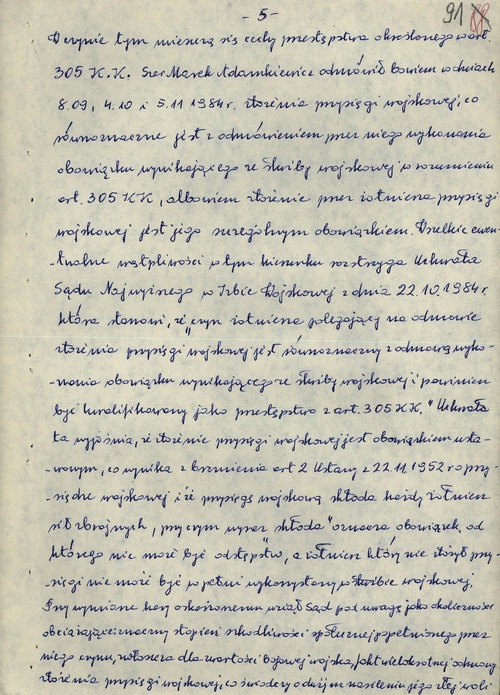 - 5 -
91 88
W czynie tym mieszczą się cechy przestępstwa określonego w art.
305 K.K. Szer. Marek Adamkiewicz odmówił bowiem w dniach
8.09, 4.10 i 5.11 1984 r. złożenia przysięgi wojskowej, co
równoznaczne jest z odmówieniem przez niego wykonania
obowiązku wynikającego ze służby wojskowej w rozumieniu
art. 305 KK, albowiem złożenie przez żołnierza przysięgi
wojskowej jest jego szczególnym obowiązkiem. Wszelkie ewen-
-tualne wątpliwości w tym kierunku rozstrzyga Uchwała
Sądu Najwyższego w Izbie Wojskowej z dnia 22.10.1984 r.
która stanowi, że "czyn żołnierza polegający na odmowie
złożenia przysięgi wojskowej jest równoznaczny z odmową wyko-
-nania obowiązku wynikającego ze służby wojskowej i powinien
być kwalifikowany jako przestępstwo z art. 305 KK." Uchwała
ta wyjaśnia, że złożenie przysięgi wojskowej jest obowiązkiem usta-
-wowym, co wynika z brzmienia art 2 Ustawy z 22.11 1952 r o przy-
-siędze wojskowej i że przysięgę wojskową składa każdy żołnierz
sił zbrojnych, przy czym wyraz "składa" oznacza obowiązek, od
którego nie może być odstępstw, a żołnierz który nie złożył przy-
-sięgi nie może być w pełni wykorzystany w służbie wojskowej.
Przy wymiarze kary oskarżonemu wziął Sąd pod uwagę jako okoliczności
obciążające: znaczny stopień szkodliwości społecznej popełnionego przez
niego czynu, zwłaszcza dla wartości bojowej wojska, fakt wielokrotnej odmowy
złożenia przysięgi wojskowej, co świadczy o dużym nasileniu jego złej woli.